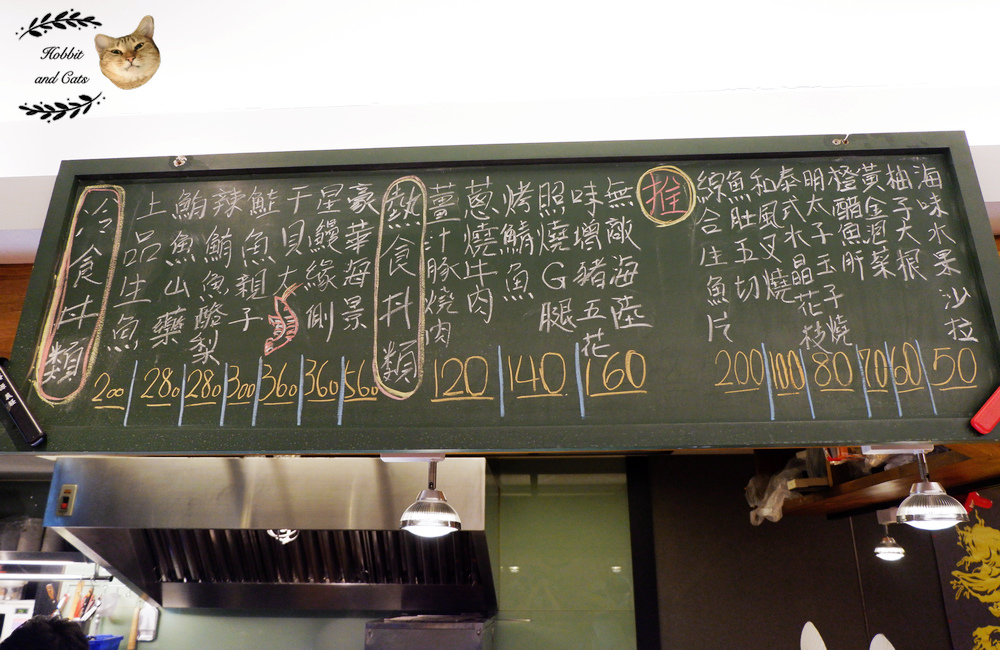 Hobbit
and Cats
冷食丼類
上品生魚
200
鮪魚山藥
280
辣鮪魚酪梨
280
鮭魚親子
300
干貝大
360
星鰻緣側
360
豪華海景
560
熱食丼類
薑汁豚燒肉
蔥燒牛肉
120
烤鯖魚
照燒G腿
140
味增豬五花
無敵海陸
160
推
綜合生魚片
200
魚肚五切
和風叉燒
100
泰式水晶花枝
明太子玉子燒
80
橙醋魚
黃金泡菜
70
柚子大根
60
海味水果沙拉
50